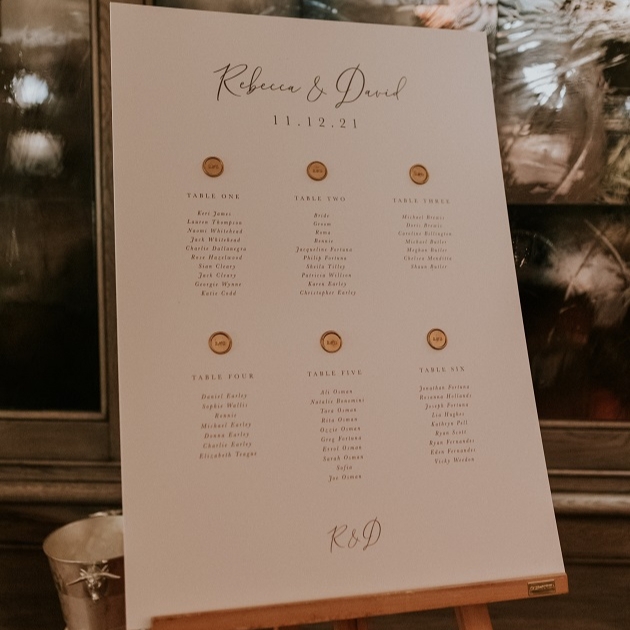 Rebecca & David
11.12.21
TABLE ONE
Keri James
Lauren Thompson
Naomi Whitehead
Jack Whitehead
Charlie Dallanegra
Rose Hazelwood
Stan Cleary
Jack Cleary
Georgie Wynne
Katie Codd
TABLE TWO
Bride
Groom
Roma
Ronnie
Jacqueline Fortuna
Philip Fortuna
Sheila Tilley
Patricia Willson
Karen Earley
Christopher Earley
TABLE THREE
Michael
Caroline Billington
Michael Butler
Meghan Butler
Chelsea Mendista
Shaun Butler
TABLE FOUR
Daniel Earley
Sophie Wallis
Ronnie
Michael Earley
Donna Earley
Charlie Earley
Elizabeth Teague
TABLE FIVE
Ali Osman
Natalie Bensmini
Tara Osman
Rita Osman
Ozzie Osman
Greg Fortuna
Errol Osman
Sarah Osman
Sofia
Joe Osman
TABLE SIX
Jonathan Fortuna
Roxanna Hollands
Joseph Fortuna
Lia Hughes
Kathryn Poll
Ryan Scott
Ryan Fernandes
Eden Fernandes
Vicky Worden
R&D